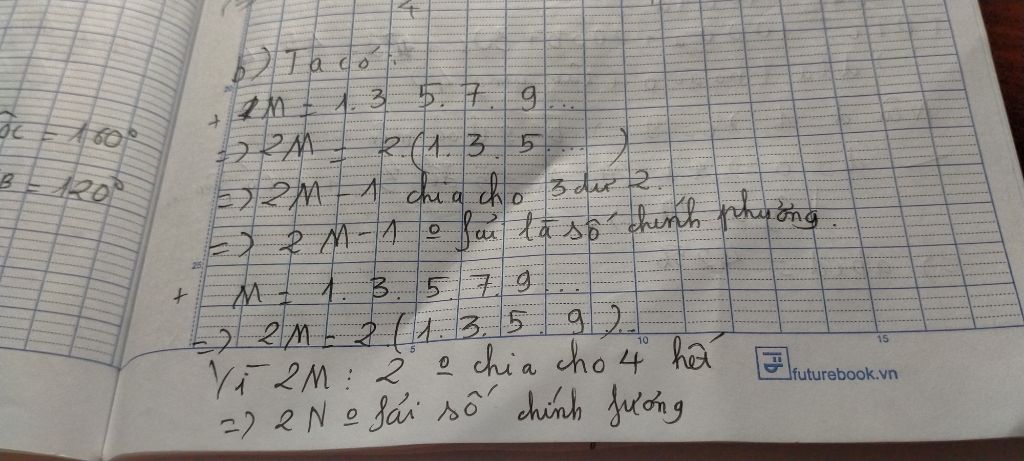 b) Ta có:
+ 2M = 1. 3 5. 7. 9...
=> 2M = 2.(1. 3. 5....)
ôc = 160°
=> 2M - 1 chia cho 3 dư 2.
B = 120°
=> 2M - 1 o fải là số chính phường.
+ M = 1. 3. 5. 7. 9...
=> 2M = 2.(1. 3. 5. 9)..
Vì 2M : 2 o chia cho 4 hết
=> 2N o fải số chính fương
25
5
10
15
futurebook.vn